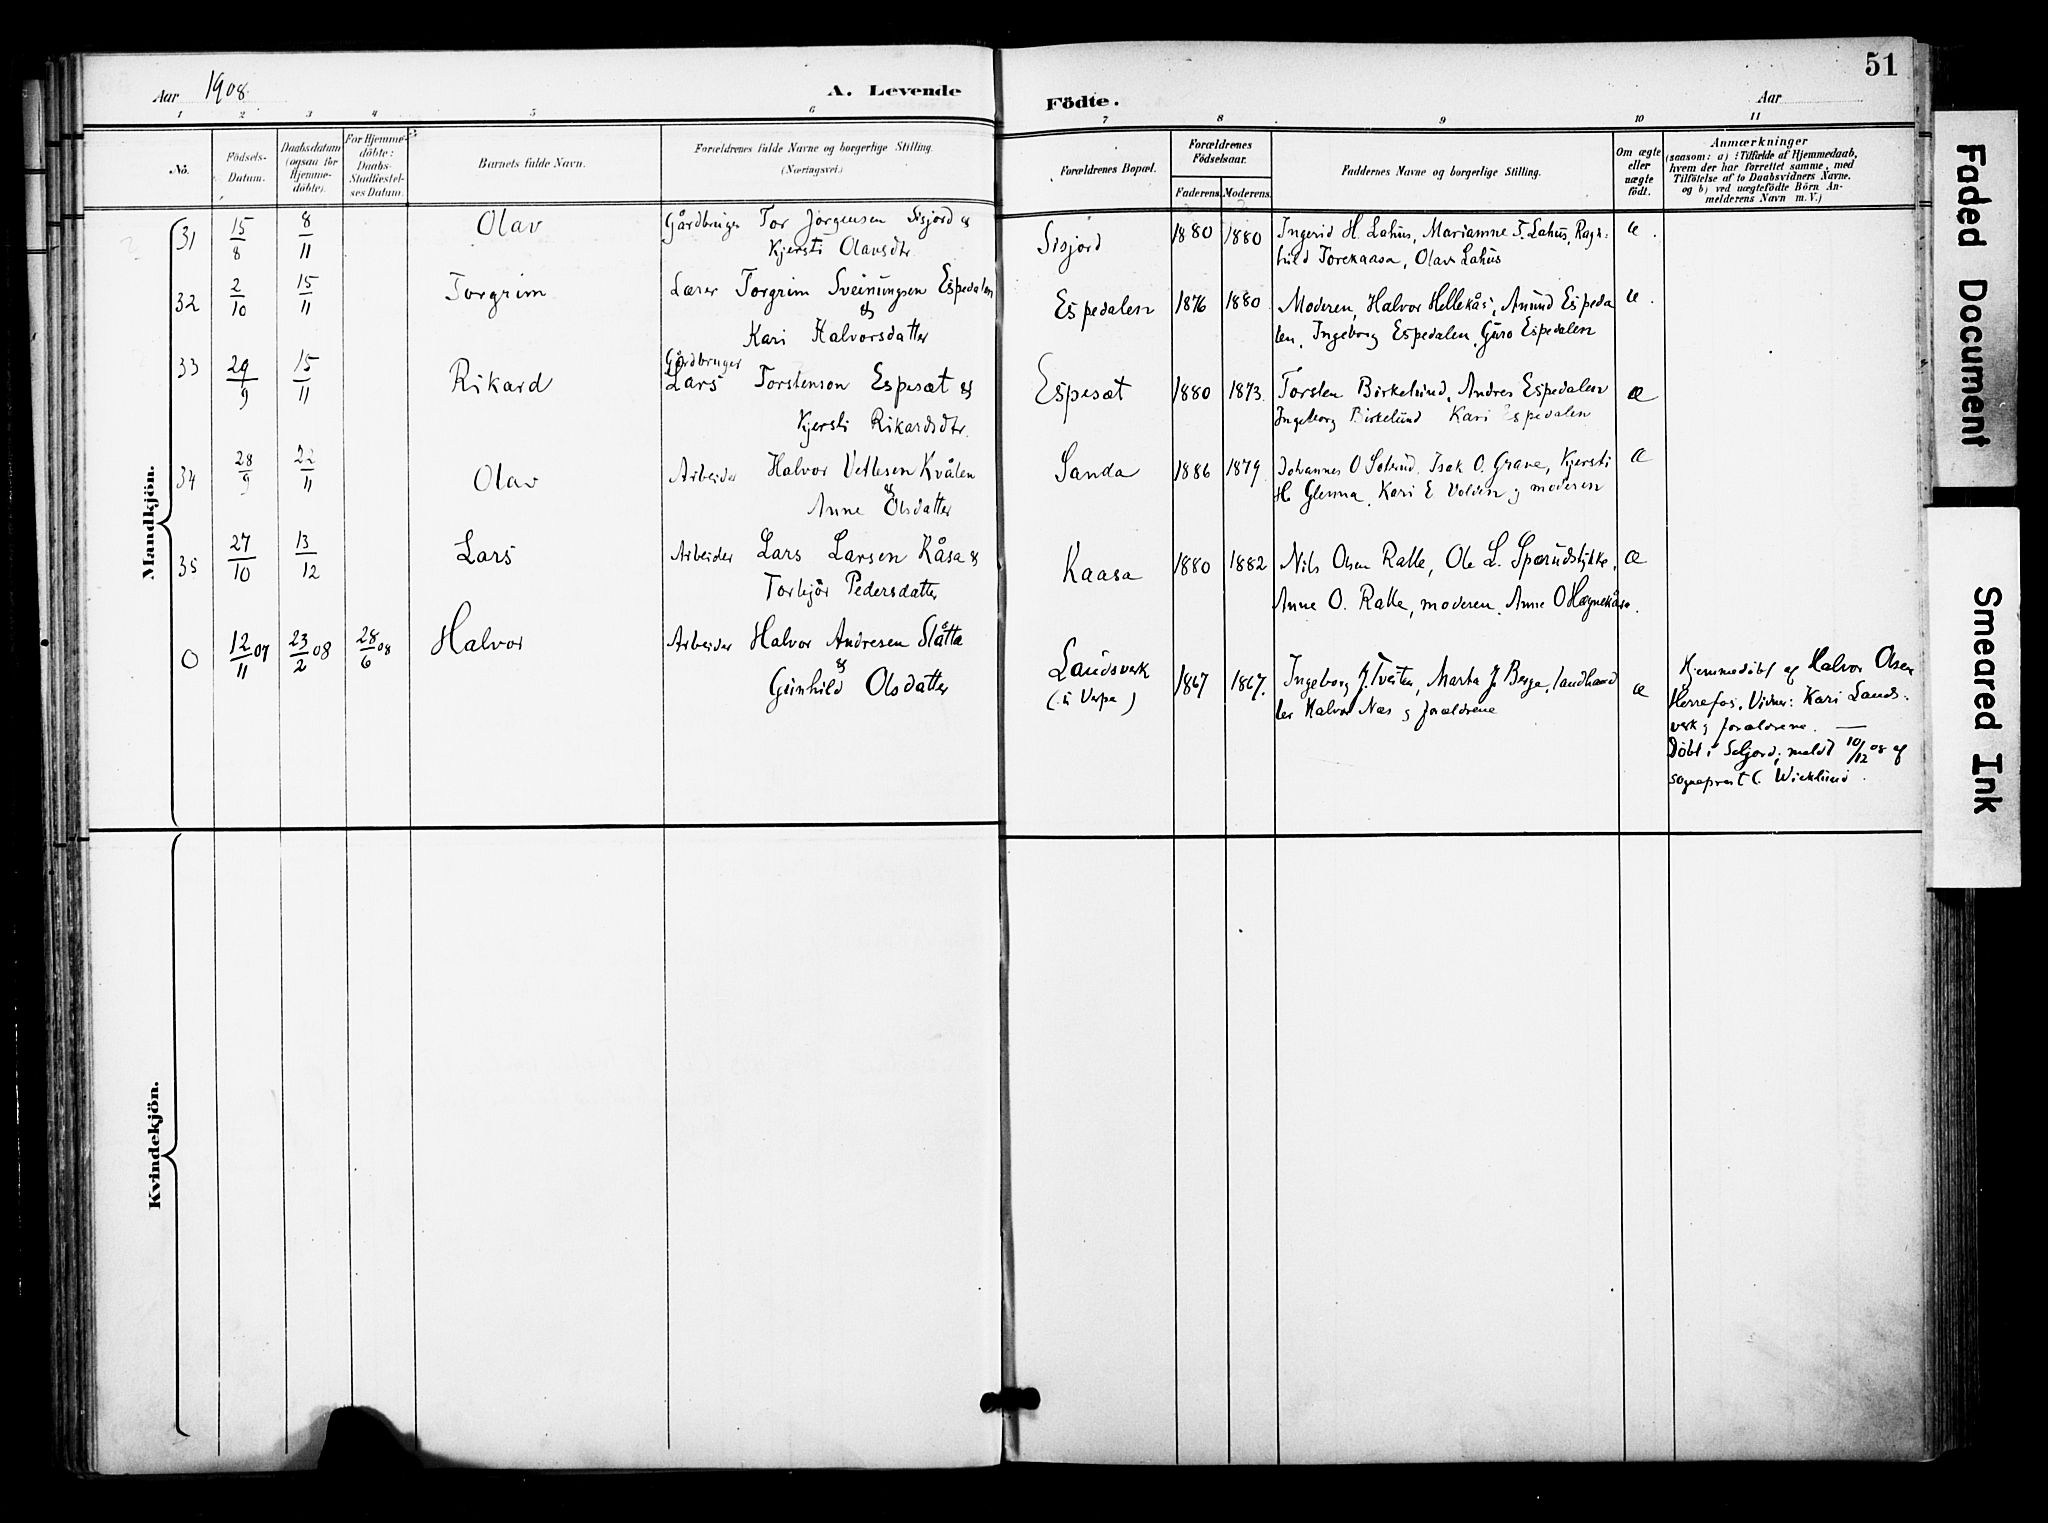 Aar 1908. A. Levende
Födte. Aar
51
1 2 3 4 5 6
7 8 9 10 11
No.
Födsels-
Datum.
Daabsdatum
(ogsaa for
Hjemme-
döbte).
For Hjemme-
döbte:
Daabs-
Stadfæstel-
ses Datum.
Barnets fulde Navn.
Forældrenes fulde Navne og borgerlige Stilling.
(Næringsvei.)
Forældrenes Bopæl.
Forældrenes
Födselsaar.
Faderens. Moderens.
Faddernes Navne og borgerlige Stilling.
Om ægte
eller
uægte
födt.
Anmærkninger
(saasom: a) i Tilfælde af Hjemmedaab,
hvem der har forrettet samme, med
Tilföielse af to Daabsvidners Navne.
og b) ved uægtefödte Börn An-
melderens Navn m. V.)
Mandkjön.
31 15/8 8/11 Olav Gårdbruger Tor Jørgensen Sisjord &
Kjersti Olavsdtr.
Sisjord 1880 1880 Ingerid H. Lahus, Mariamne T. Lahus, Ragn-
hild Torekaasa, Olav Lahus
æ.
32 2/10 15/11 Torgrim Lærer Torgrim Sveinungsen Espedalen
&
Kari Halvorsdatter
Espedalen 1876 1880 Moderen, Halvor Hellekås, Anund Espeda
len, Ingeborg Espedalen, Guro Espedalen
æ.
33 29/9 15/11 Rikard Gårdbruger
Lars Torstenson Espesæt &
Kjersti Rikardsdtr.
Espesæt 1880 1873. Torsten Birkelund, Andres Espedalen
Ingeborg Birkelund Kari Espedalen
æ
34 28/9 22/11 Olav Arbeider Halvor Vetlesen Kvålen
&
Anne Olsdatter
Sanda 1886 1879 Johannes O Isak O. Grave, Kjersti
H. Glenna, Kari E Volden g moderen
æ
35 27/10 13/12 Lars Arbeider Lars Larsen Kåsa &
Torbjør Pedersdatter
Kaasa 1880 1882 Nils Olsen Ralle, Ole L. Sperudstykke,
Anne O. Ralle, moderen, Anne O Hægnekåsa.
æ
0 12/11 07 23/2 08 28/6 08 Halvor Arbeider Halvor Andresen Slåtta
&
Gunhild Olsdatter
Landsverk
(i Verpe)
1867 1867. Ingeborg J. Tveiten, Marta J Berge, landhand
ler Halvor Næs g forældrene
æ
Hjemmedøbt af Halvor Olsen
Herrefos, Vidner: Kari Lands-
verk g forældrene. —
Døbt i Seljord; meldt 10/12 08 af
sogneprest C. Wicklund.
Kvindekjön.
Faded Document
Smeared Ink